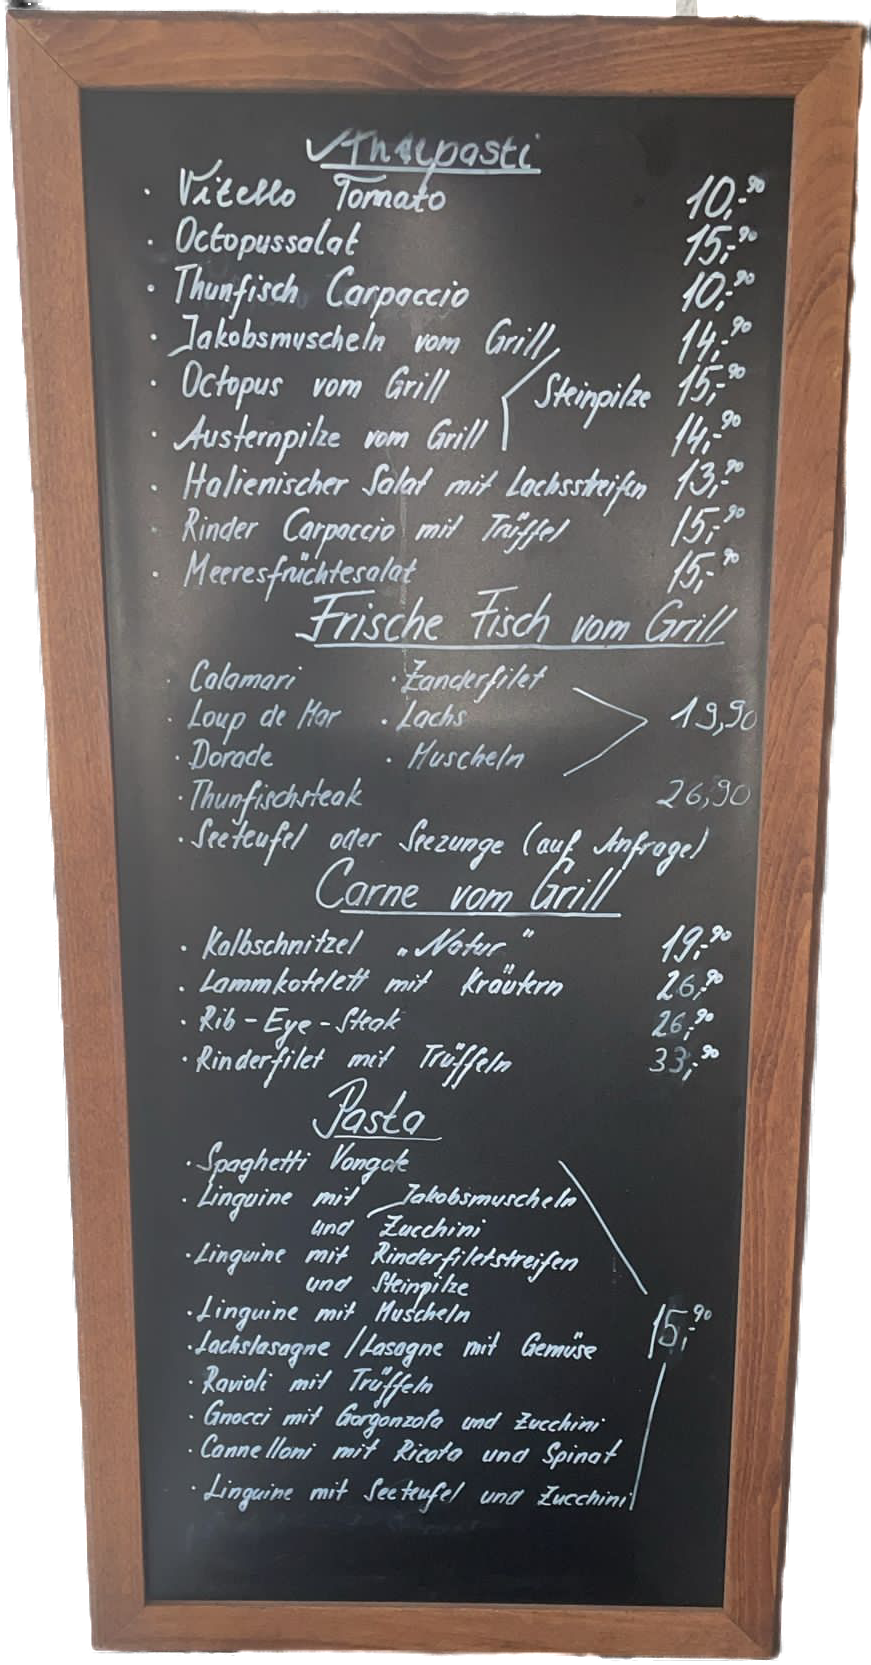 Antipasti
· Vitello Tomato 10,-90
· Octopussalat 15,-90
· Thunfisch Carpaccio 10,-90
· Jakobsmuscheln vom Grill 14,-90
· Octopus vom Grill Steinpilze 15,-90
· Austernpilze vom Grill 14,-90
· Italienischer Salat mit Lachsstreifen 13,-90
· Rinder Carpaccio mit Trüffel 15,-90
· Meeresfrüchtesalat 15,-90
Frische Fisch vom Grill
· Calamari · Zanderfilet
· Loup de Mar · Lachs 19,90
· Dorade · Muscheln
· Thunfischsteak 26,90
· Seeteufel oder Seezunge (auf Anfrage)
Carne vom Grill
· Kalbschnitzel „Natur“ 19,-90
· Lammkotelett mit Kräutern 26,-90
· Rib-Eye-Steak 26,-90
· Rinderfilet mit Trüffeln 33,-90
Pasta
· Spaghetti Vongole
· Linguine mit Jakobsmuscheln
und Zucchini
· Linguine mit Rinderfiletstreifen
und Steinpilze
· Linguine mit Muscheln 15,-90
· Lachslasagne / Lasagne mit Gemüse
· Ravioli mit Trüffeln
· Gnocci mit Gorgonzola und Zucchini
· Cannelloni mit Ricota und Spinat
· Linguine mit Seeteufel und Zucchini